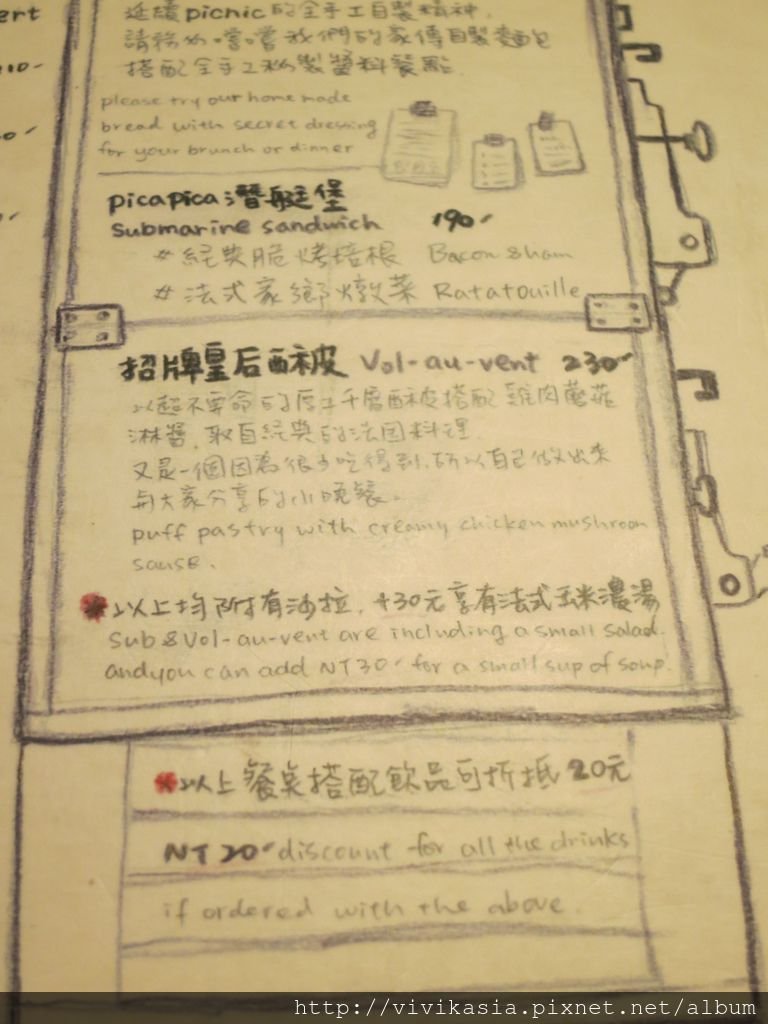 ert
延續picnic的全手工自製精神.
請務必嚐嚐我們的家傳自製麵包
搭配全手工秘製醬料餐點.
please try our home made
bread with secret dressing
for your brunch or dinner
picapica潛艇堡
submarine sandwich 190-
#經典脆烤培根 Bacon & ham
#法式家鄉燉菜 Ratatouille
招牌皇后酥皮 Vol-au-vent 230-
以超不要命的厚工千層酥皮搭配雞肉蘑菇
淋醬.取自經典的法国料理.
又是一個因為很少吃得到.所以自己做出來
與大家分享的小晚餐。
puff pastry with creamy chicken mushroom
sause.
以上均附有沙拉, +30元享有法式玉米濃湯
Sub & Vol-au-vent are including a small salad.
and you can add NT 30- for a small sup of soup.
以上餐桌搭配飲品可折抵20元
NT 20- discount for all the drinks
if ordered with the above.
http://vivikasia.pixnet.net/album